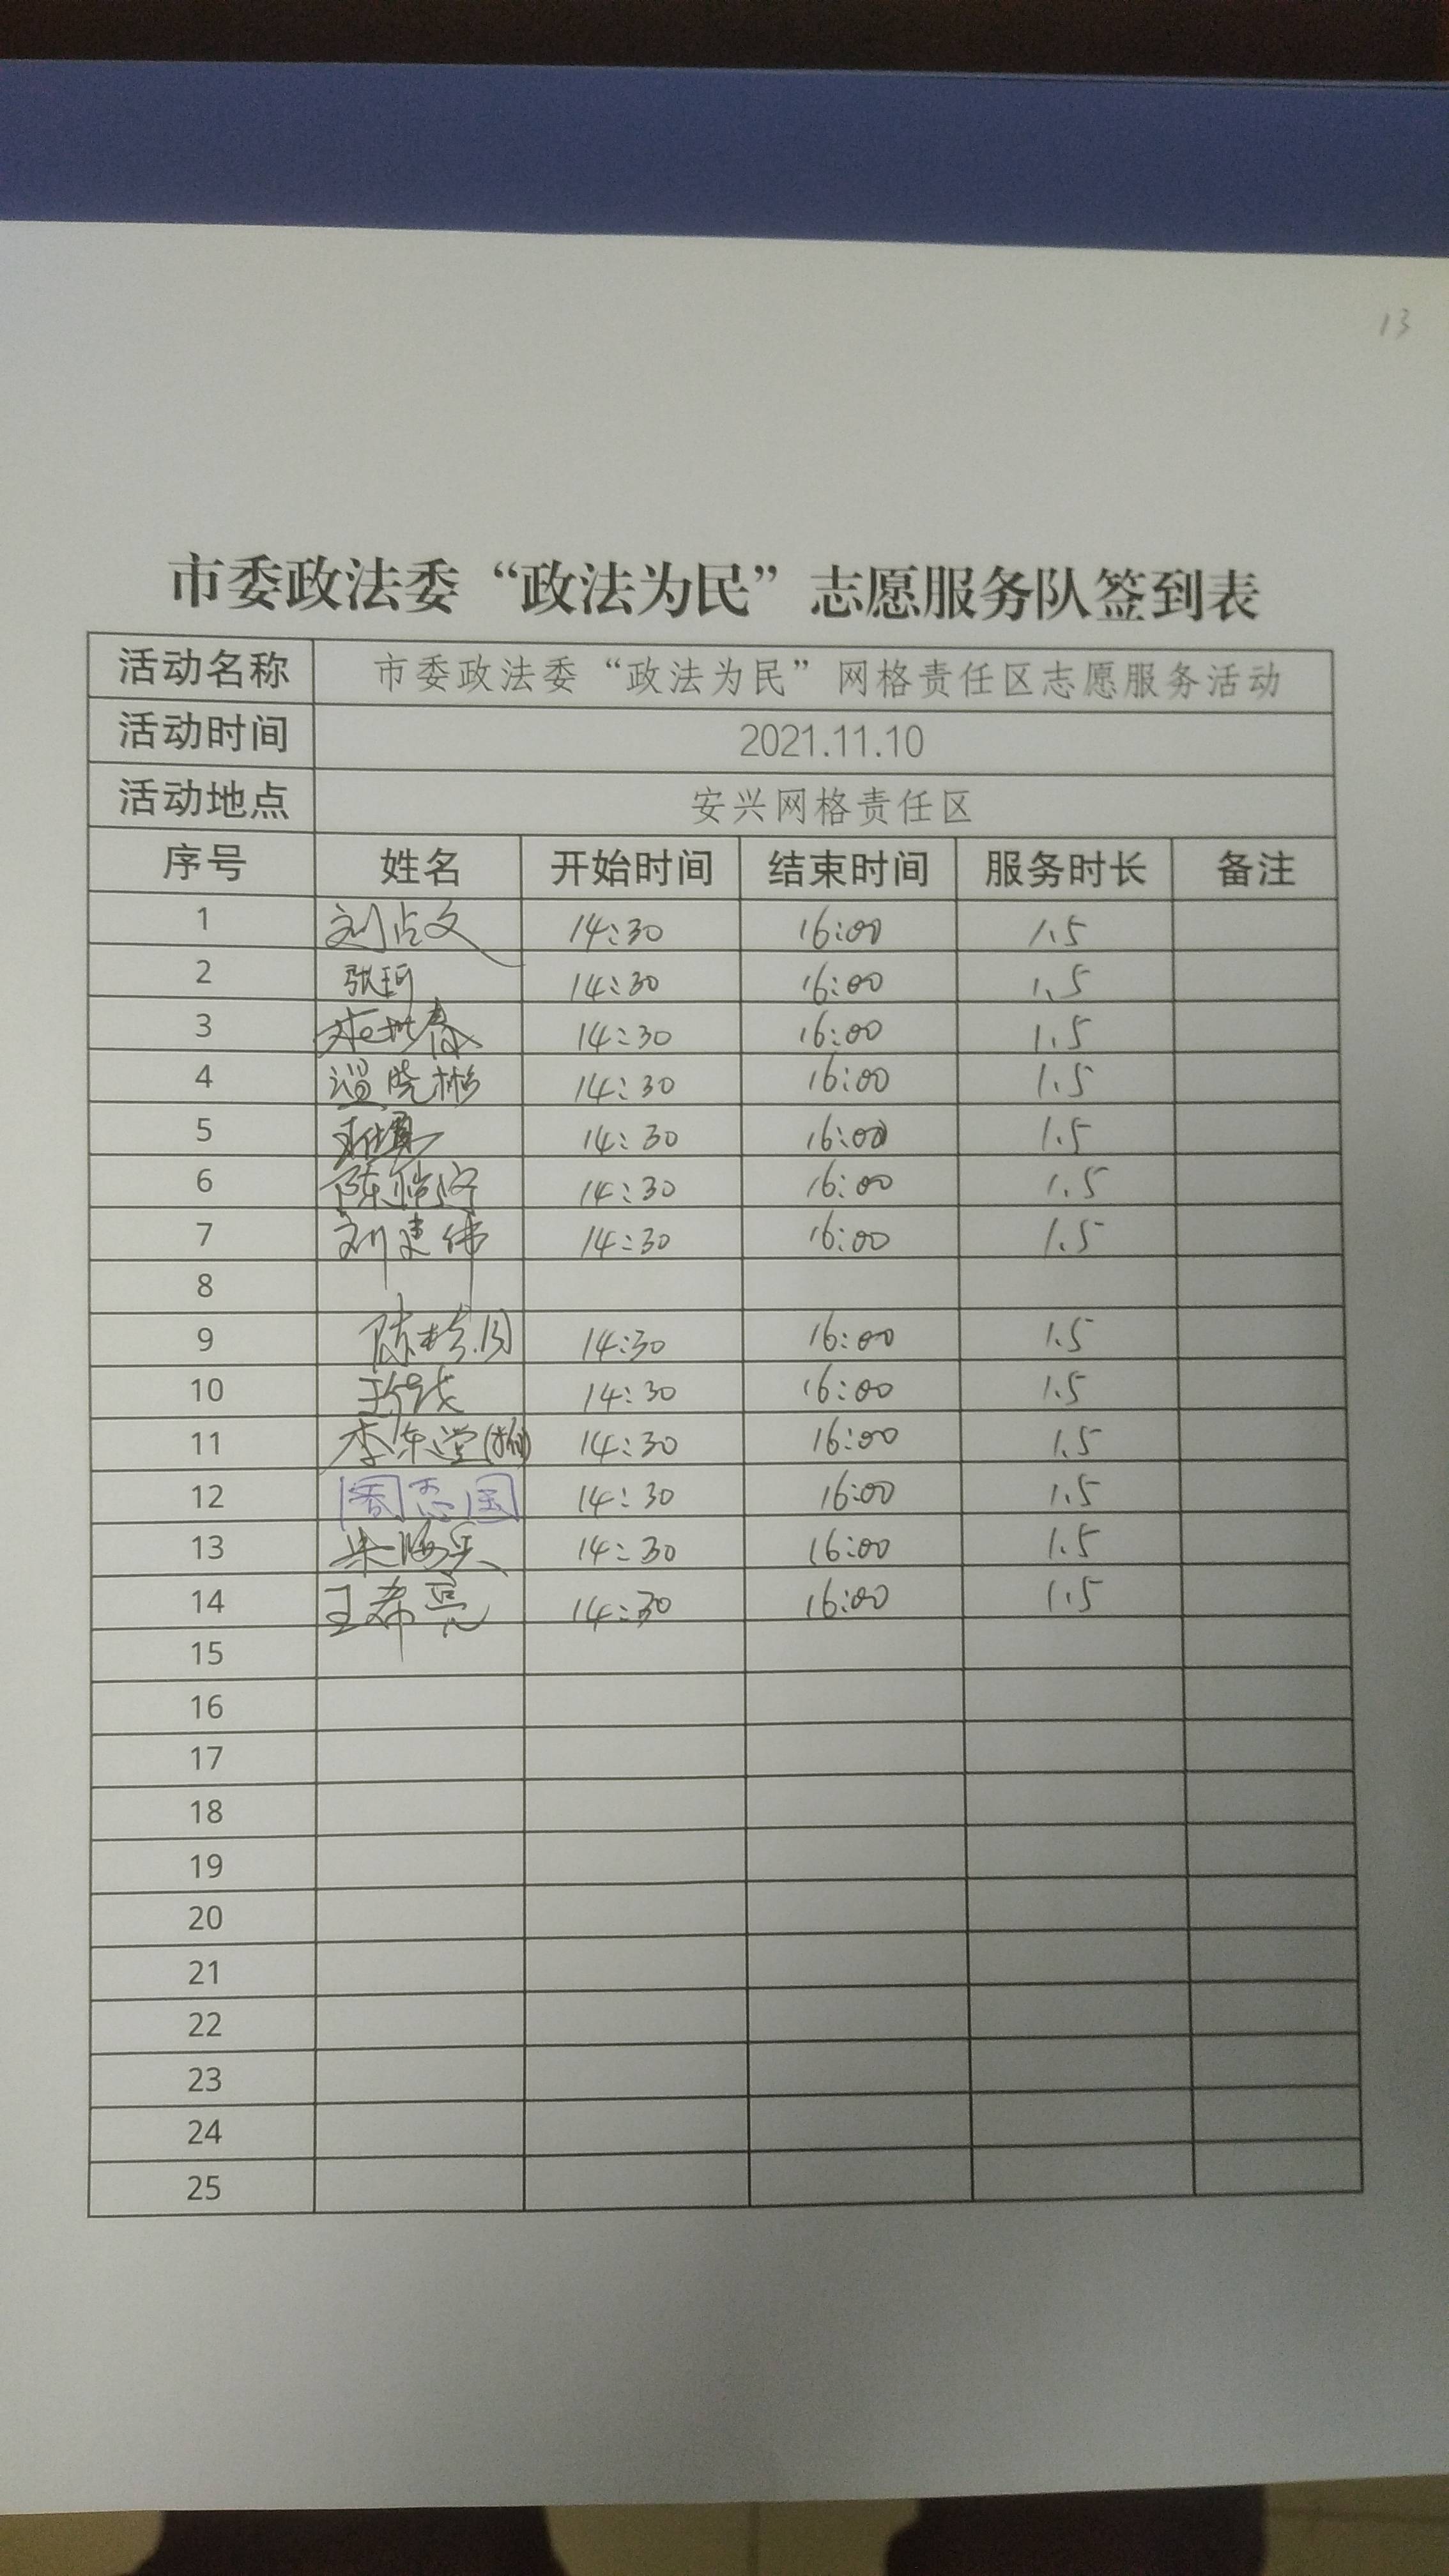 13
市委政法委“政法为民”志愿服务队签到表
活动名称 市委政法委“政法为民”网格责任区志愿服务活动
活动时间 2021.11.10
活动地点 安兴网格责任区
序号 姓名 开始时间 结束时间 服务时长 备注
1 刘占文 14:30 16:00 1.5
2 张珂 14:30 16:00 1.5
3 14:30 16:00 1.5
4 温晓彬 14:30 16:00 1.5
5 14:30 16:00 1.5
6 陈 14:30 16:00 1.5
7 刘建伟 14:30 16:00 1.5
8
9 陈 14:30 16:00 1.5
10 王 14:30 16:00 1.5
11 李 14:30 16:00 1.5
12 周志国 14:30 16:00 1.5
13 朱海乐 14:30 16:00 1.5
14 王希亮 14:30 16:00 1.5
15
16
17
18
19
20
21
22
23
24
25